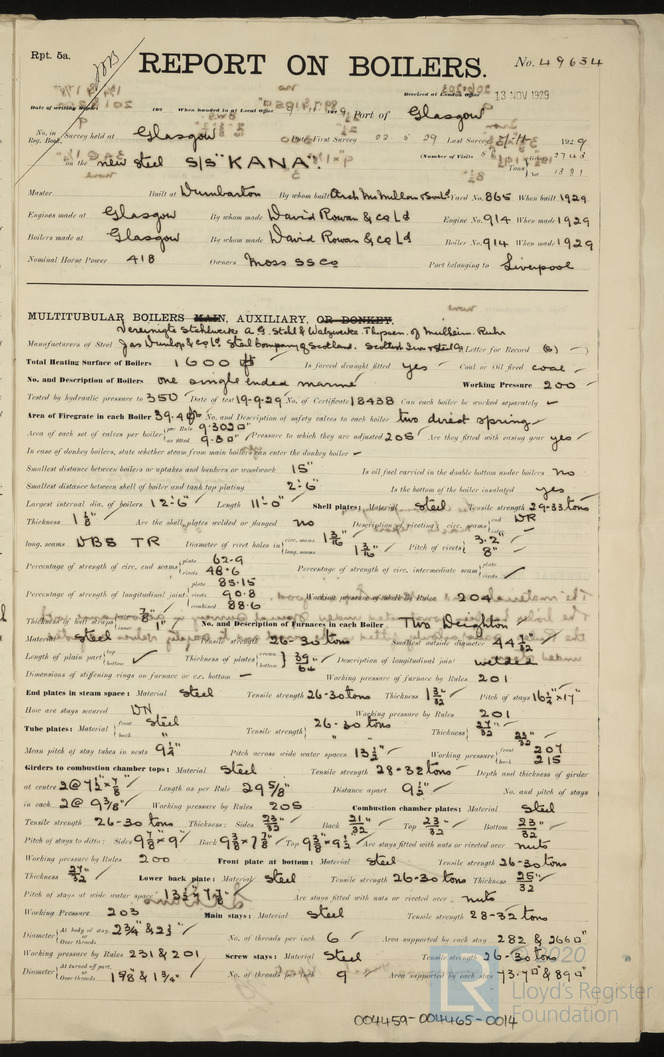 Rpt. 5a.
REPORT ON BOILERS.
No. 49634
Received at London Office 13 NOV 1929
Date of writing Report 192 When handed in at Local Office 192 Port of Glasgow
No. in Reg. Book. Survey held at Glasgow First Survey Last Survey 1929
on the new steel S/S "KANA". (Number of Visits
Tons
Master Built at Dumbarton By whom built Arch McMillan & Son Ld Yard No. 865 When built 1929
Engines made at Glasgow By whom made David Rowan & Co Ld Engine No. 914 When made 1929
Boilers made at Glasgow By whom made David Rowan & Co Ld Boiler No. 914 When made 1929
Nominal Horse Power 418 Owners Moss SS Co Port belonging to Liverpool
MULTITUBULAR BOILERS MAIN, AUXILIARY, OR DONKEY.
Vereinigte Stahlwerke A G. Stahl & Walzwerke Thyssen of Mulheim. Ruhr
Manufacturers of Steel Jas Dunlop & Co Ld. Steel Company of Scotland. Scottish Iron & Steel Co Letter for Record (S)
Total Heating Surface of Boilers 1600 ft Is forced draught fitted yes Coal or Oil fired coal
No. and Description of Boilers one single ended marine Working Pressure 200
Tested by hydraulic pressure to 350 Date of test 19-9-29 No. of Certificate 18438 Can each boiler be worked separately ✓
Area of Firegrate in each Boiler 39.4 No. and Description of safety valves to each boiler two direct spring
Area of each set of valves per boiler per Rule 9.3020" as fitted 9.80" Pressure to which they are adjusted 205 Are they fitted with easing gear yes
In case of donkey boilers, state whether steam from main boilers can enter the donkey boiler
Smallest distance between boilers or uptakes and bunkers or woodwork 15" Is oil fuel carried in the double bottom under boilers no
Smallest distance between shell of boiler and tank top plating 2'-6" Is the bottom of the boiler insulated yes
Largest internal dia. of boilers 12'-6" Length 11'-0" Shell plates: Material Steel Tensile strength 29-33 tons
Thickness 1 1/8" Are the shell plates welded or flanged no Description of riveting: circ. seams end DR
long. seams DBS TR Diameter of rivet holes in circ. seams 1 3/16" long. seams 1 3/16" Pitch of rivets 3.2" 8"
Percentage of strength of circ. end seams plate 62.9 rivets 48.6 Percentage of strength of circ. intermediate seam plate rivets
Percentage of strength of longitudinal joint plate 85.15 rivets 90.8 combined 88.6 Working pressure of shell by Rules 204
Thickness of butt straps outer 7/8" inner 1" No. and Description of Furnaces in each Boiler Two Deighton
Material Steel Tensile strength 26-30 tons Smallest outside diameter 44 1/32"
Length of plain part top bottom Thickness of plates crown bottom 39/64" Description of longitudinal joint welded
Dimensions of stiffening rings on furnace or c.c. bottom Working pressure of furnace by Rules 201
End plates in steam space: Material Steel Tensile strength 26-30 tons Thickness 1 3/32" Pitch of stays 16 1/2" x 17"
How are stays secured DN Working pressure by Rules 201
Tube plates: Material front Steel back " Tensile strength 26-30 tons " Thickness 27/32" 23/32"
Mean pitch of stay tubes in nests 9 1/2" Pitch across wide water spaces 13 1/2" Working pressure front 207 back 215
Girders to combustion chamber tops: Material Steel Tensile strength 28-32 tons Depth and thickness of girder
at centre 2 @ 7 1/2" x 7/8" Length as per Rule 29 5/8" Distance apart 9 1/2" No. and pitch of stays
in each 2 @ 9 3/8" Working pressure by Rules 205 Combustion chamber plates: Material Steel
Tensile strength 26-30 tons Thickness: Sides 23/32" Back 21/32" Top 23/32" Bottom 23/32"
Pitch of stays to ditto: Sides 9 7/8" x 9" Back 9 3/8" x 7 7/8" Top 9 3/8" x 9 1/2" Are stays fitted with nuts or riveted over nuts
Working pressure by Rules 200 Front plate at bottom: Material Steel Tensile strength 26-30 tons
Thickness 27/32" Lower back plate: Material Steel Tensile strength 26-30 tons Thickness 25/32"
Pitch of stays at wide water space 13 1/2" x 7 7/8" Are stays fitted with nuts or riveted over nuts
Working Pressure 203 Main stays: Material Steel Tensile strength 28-32 tons
Diameter At body of stay, or Over threads 2 3/4" & 2 1/2" No. of threads per inch 6 Area supported by each stay 282 & 266
Working pressure by Rules 231 & 201 Screw stays: Material Steel Tensile strength 26-30 tons
Diameter At turned off part, or Over threads 1 5/8" & 1 3/4" No. of threads per inch 9 Area supported by each stay 73.7 & 89
©2020
LR
Lloyd's Register
Foundation
004459-004465-0014